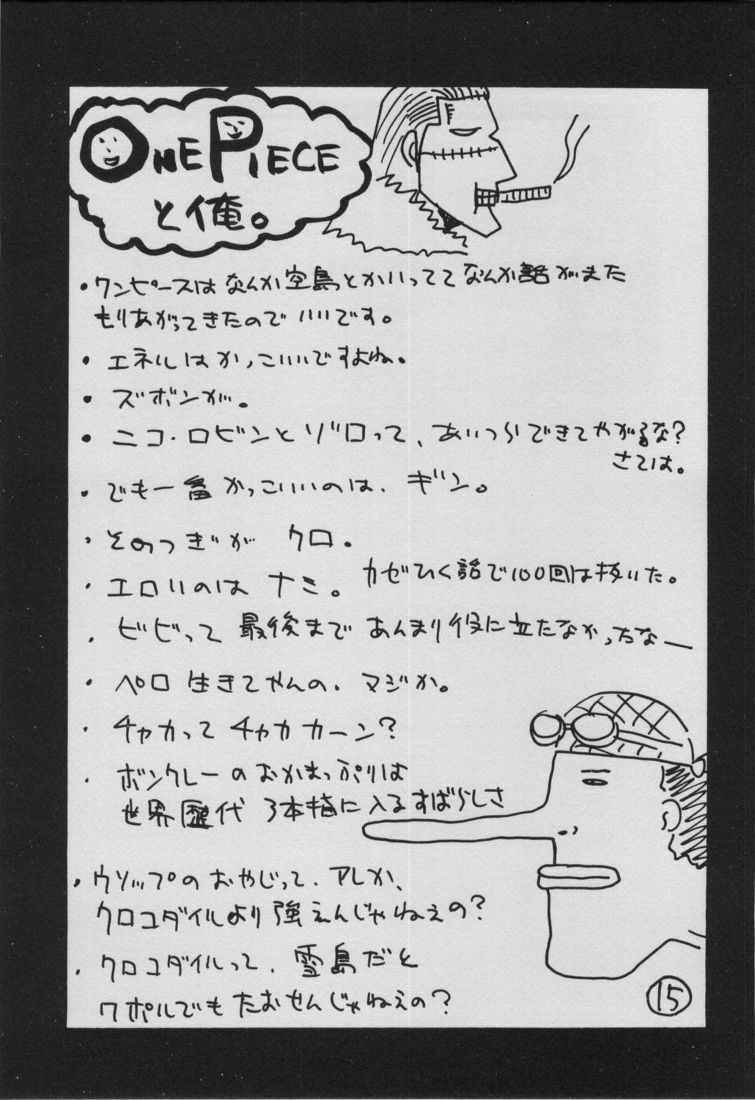 ONE PIECE
と俺。
・ワンピースはなんか空島とかいってて なんか話がまた
もりあがってきたので いいです。
・エネルはかっこいいですよね。
・ズボンが。
・ニコ・ロビンとゾロって、あいつらできてやがるな?
さては。
・でも一番かっこいいのは、ギン。
・そのつぎが クロ。
・エロいのは ナミ。 カゼひく話で100回は抜いた。
・ビビって 最後まで あんまり役に立たなかったなー
・ペロ 生きてやんの、マジか。
・チャカって チャカ カーン?
・ボンクレーのおかまっぷりは
世界歴代 3本指に入るすばらしさ
・ウソップのおやじって、アレか、
クロコダイルより強えんじゃねえの?
・クロコダイルって、雪島だと
ワポルでもたおせんじゃねえの?
15